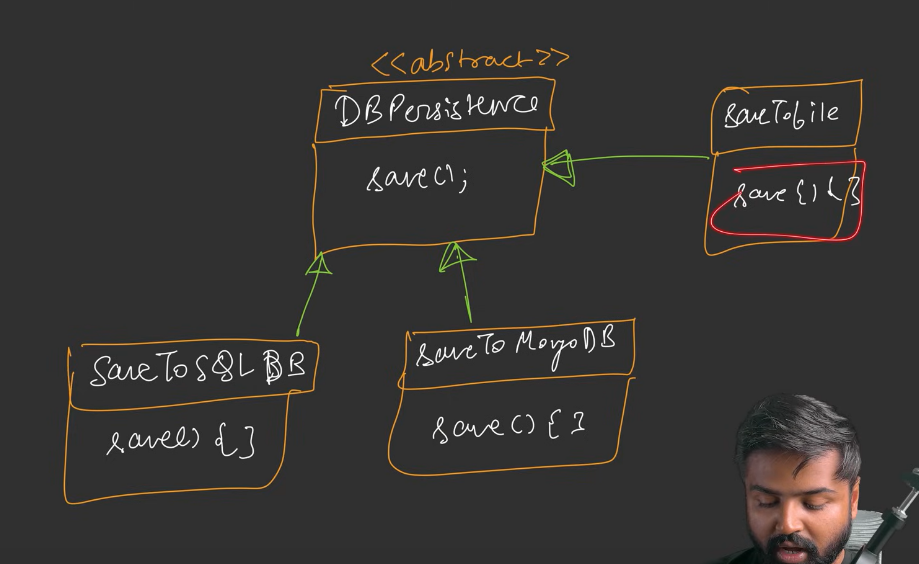 <<abstract>>
DBPersistence
save();
SaveToFile
save() { }
SaveToSQLDB
save() { }
SaveToMongoDB
save() { }